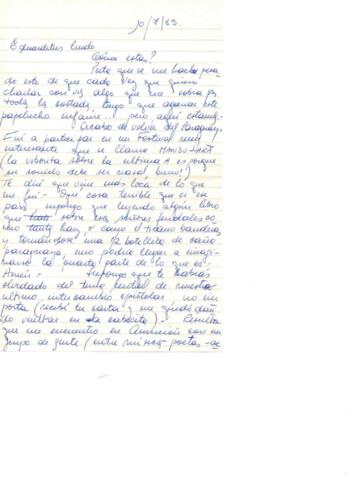 10/7/83.
Eduarditus lindo.
¿Cómo estás?
Puta que se me hace pesa
do esto de que cada vez que quiero
charlar con vos algo que me sobra pa
todos los costados, tengo que agarrar este
papelucho infame... pero aquí estamos.
Acabo de volver del Paraguay.
Fui a participar en un Festival muy
interesante que se llama MANDU'ARÃ
(la viborita sobre la última A es porque
su sonido debe ser nasal, bueno!)
Te diré que vine más loca de lo que
me fui. Qué cosa terrible que es ese
país, supongo que leyendo algún libro
que sobre esos señores feudales co
mo hay, como el tirano bandera
y tomándose una 1/2 botellita de caña
paraguaya, uno podría llegar a imagi-
narse la cuarta parte de lo que es.
Amén. Supongo que te habrás
olvidado del tema central de nuestro
último intercambio epistolar no im
porta (recibí tu carta y me quedó dan
do vueltas en la cabecita)- Resulta
que me encuentro en Asunción con un
grupo de gente (entre músicos- poetas-